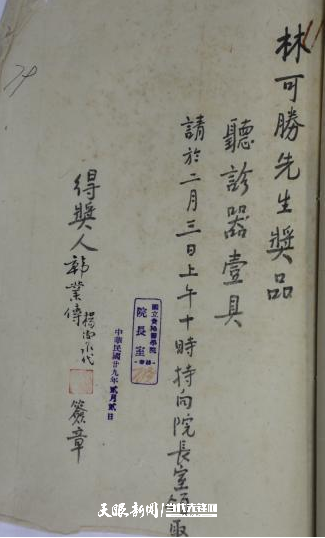 林可勝先生獎品
聽診器壹具
請於二月三日上午十時持向院長室領取
國立貴陽醫學院
院長室
中華民國廿九年貳月貳日
得獎人
代
簽章
天眼新闻
当代先锋网